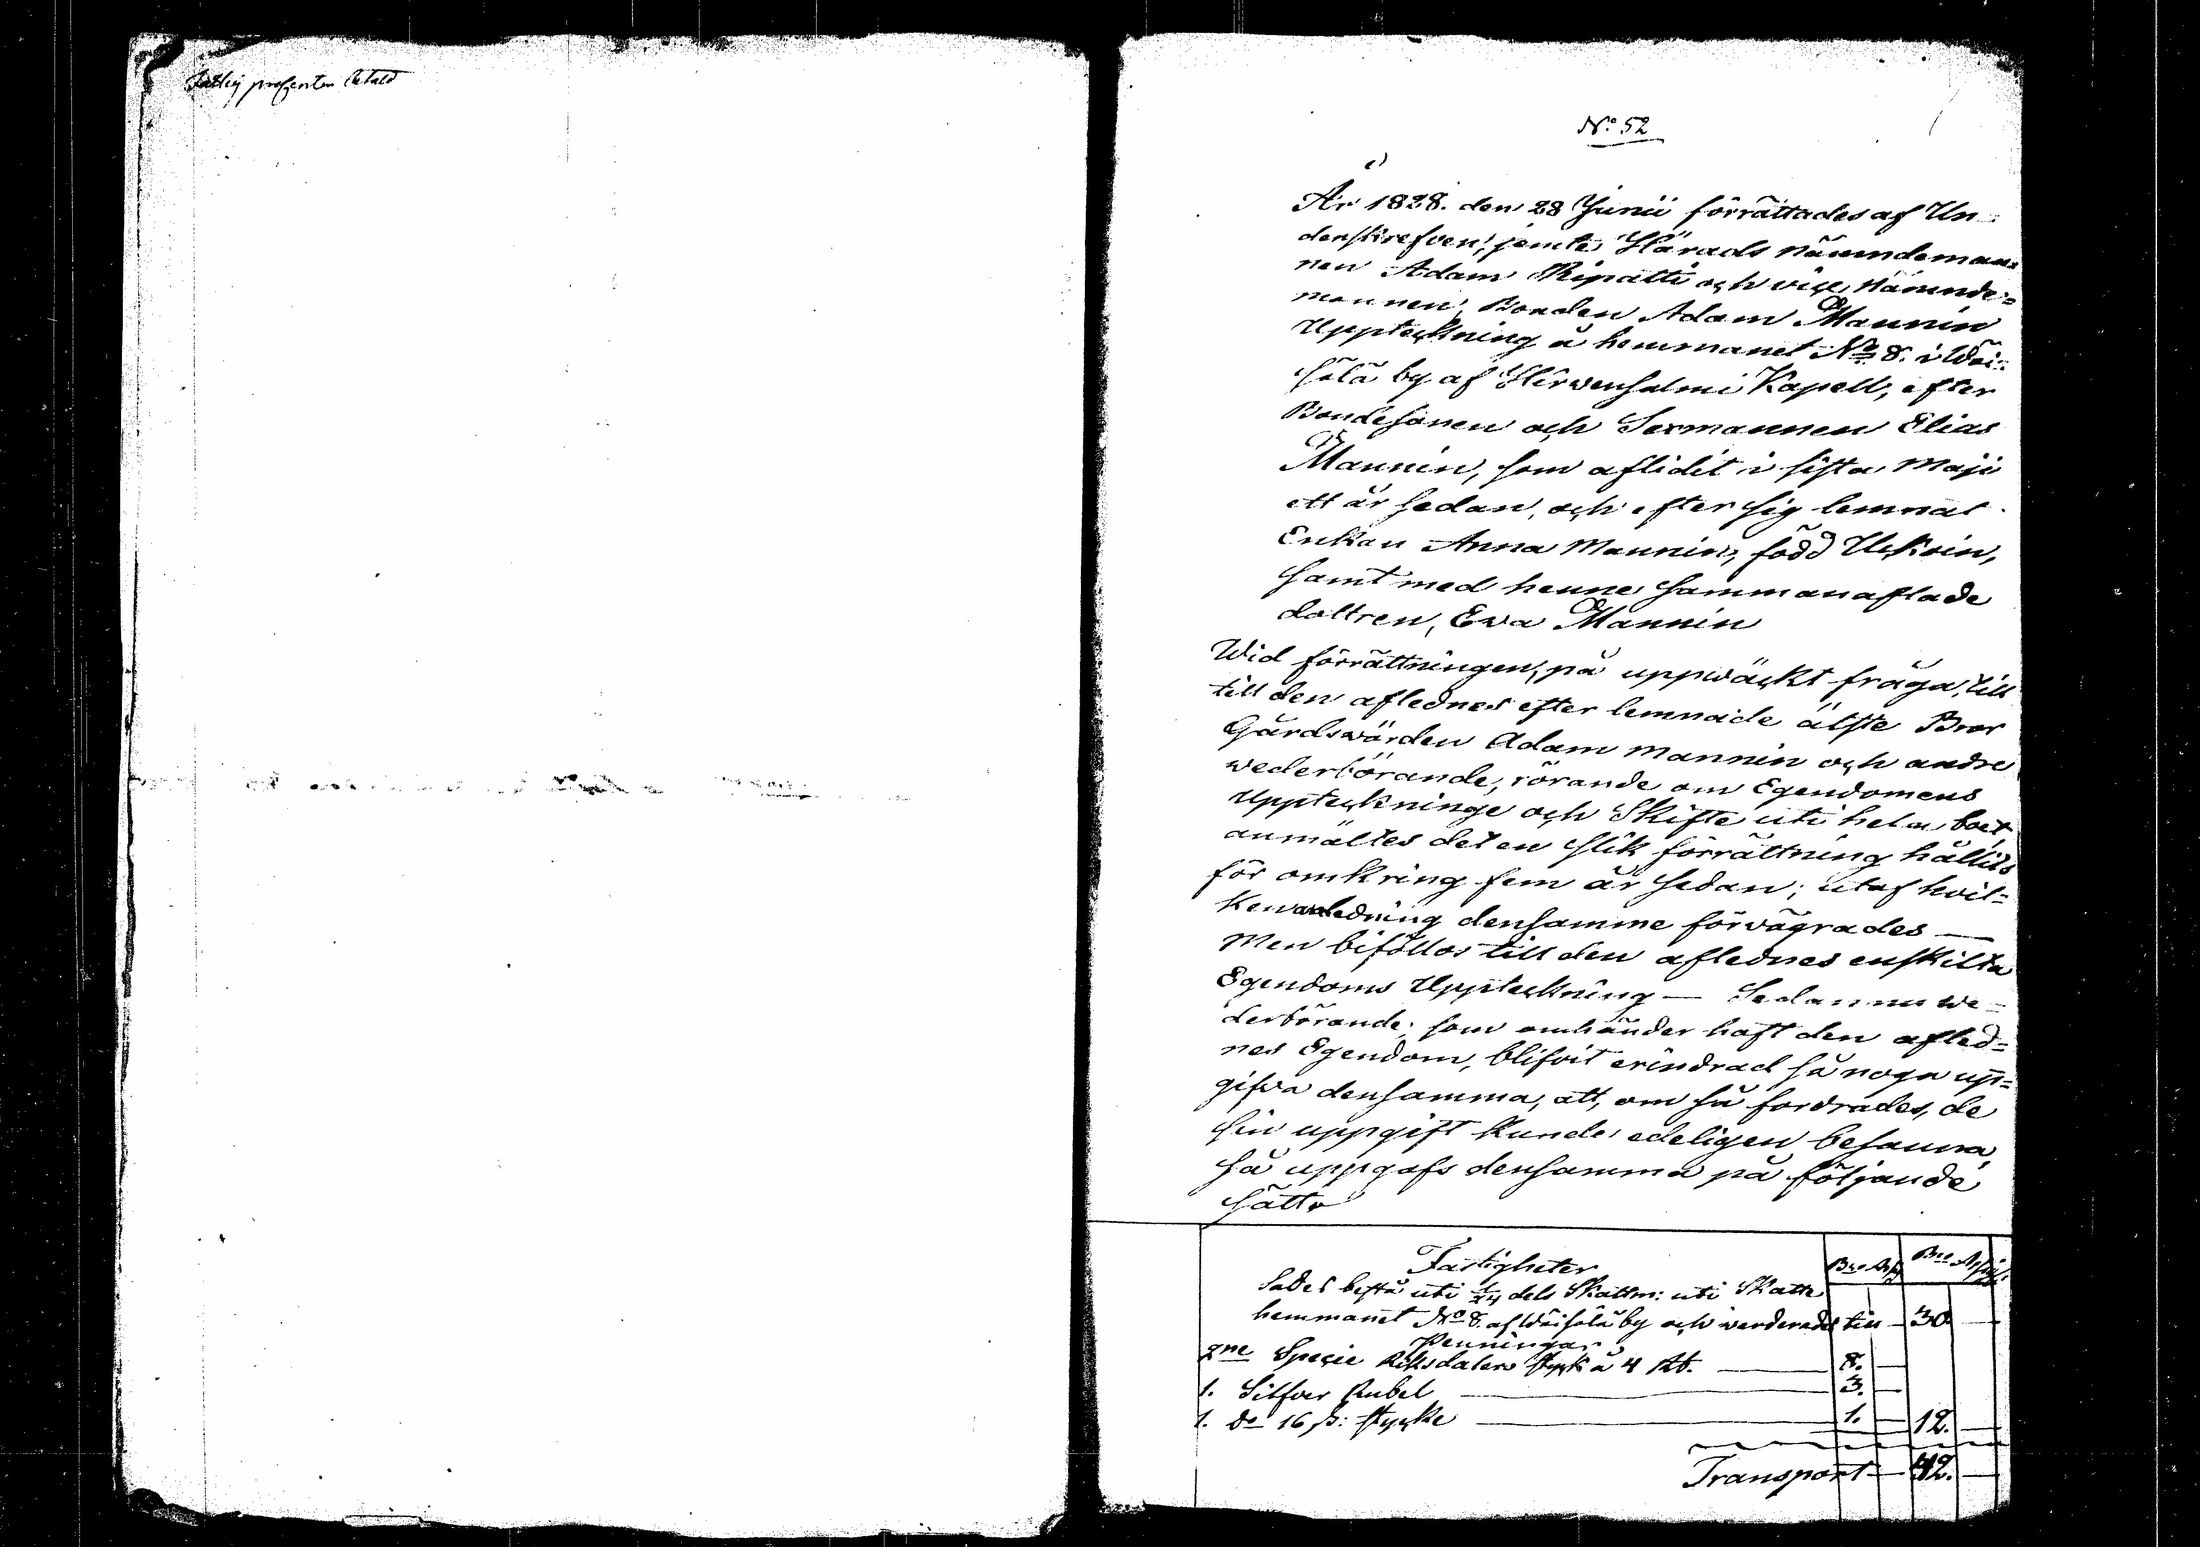 Fattig procenten betald
No 52
År 1828. den 28 Junii förrättades af Un-
denskrefven, jemte Härads nämndeman-
nen Adam Ripatti och viçe Nämnde-
mannen, Bonden Adam Mannin
Uppteckning å hemmanet No 8. i Wäi-
sälä by af Hirwensalmi Kapell, efter
Bondesonen och Sexmannen Elias
Mannin, som aflidit i sista Maji
ett år sedan, och efter sig lemnat
Enkan Anna Mannin, född Uskoin,
samt med henne sammanaflade
dottren, Ewa Mannin
Wid förrättningen, på uppwäckt fråga, till
till den aflednes efter lemnade älste Bror
Gårdswärden Adam Mannin och andre
wederbörande, rörande om Egendomens
Uppteckninge och Skifte uti hela boet,
anmältes det en slik förrättning hållits
för omkring fem år sedan; utaf hvil-
ken anledning densamme förvägrades —
Men biföllos till den aflednes enskilta
Egendoms Uppteckning — Sedan nu we-
derbörande, som omhänder haft den afled-
nes Egendom, blifvit erindrad så noga up-
gifva densamma, att, om så fordrades, de
sin uppgift kunde edeligen besanna,
så uppgafs densamma på följande
sätt
Fastigheter
Sades bestå uti 1/24 dels Skattm: uti Skatte
hemmanet No 8. af Wäisälä by och värderades till — 30 —
Penningar
2ne Speçie Riksdalers styck å 4 Rb. — 8. —
1. Silfver Rubel — 3. —
1. do 16 s: stycke — 1. — 12. —
Transport — 42. —